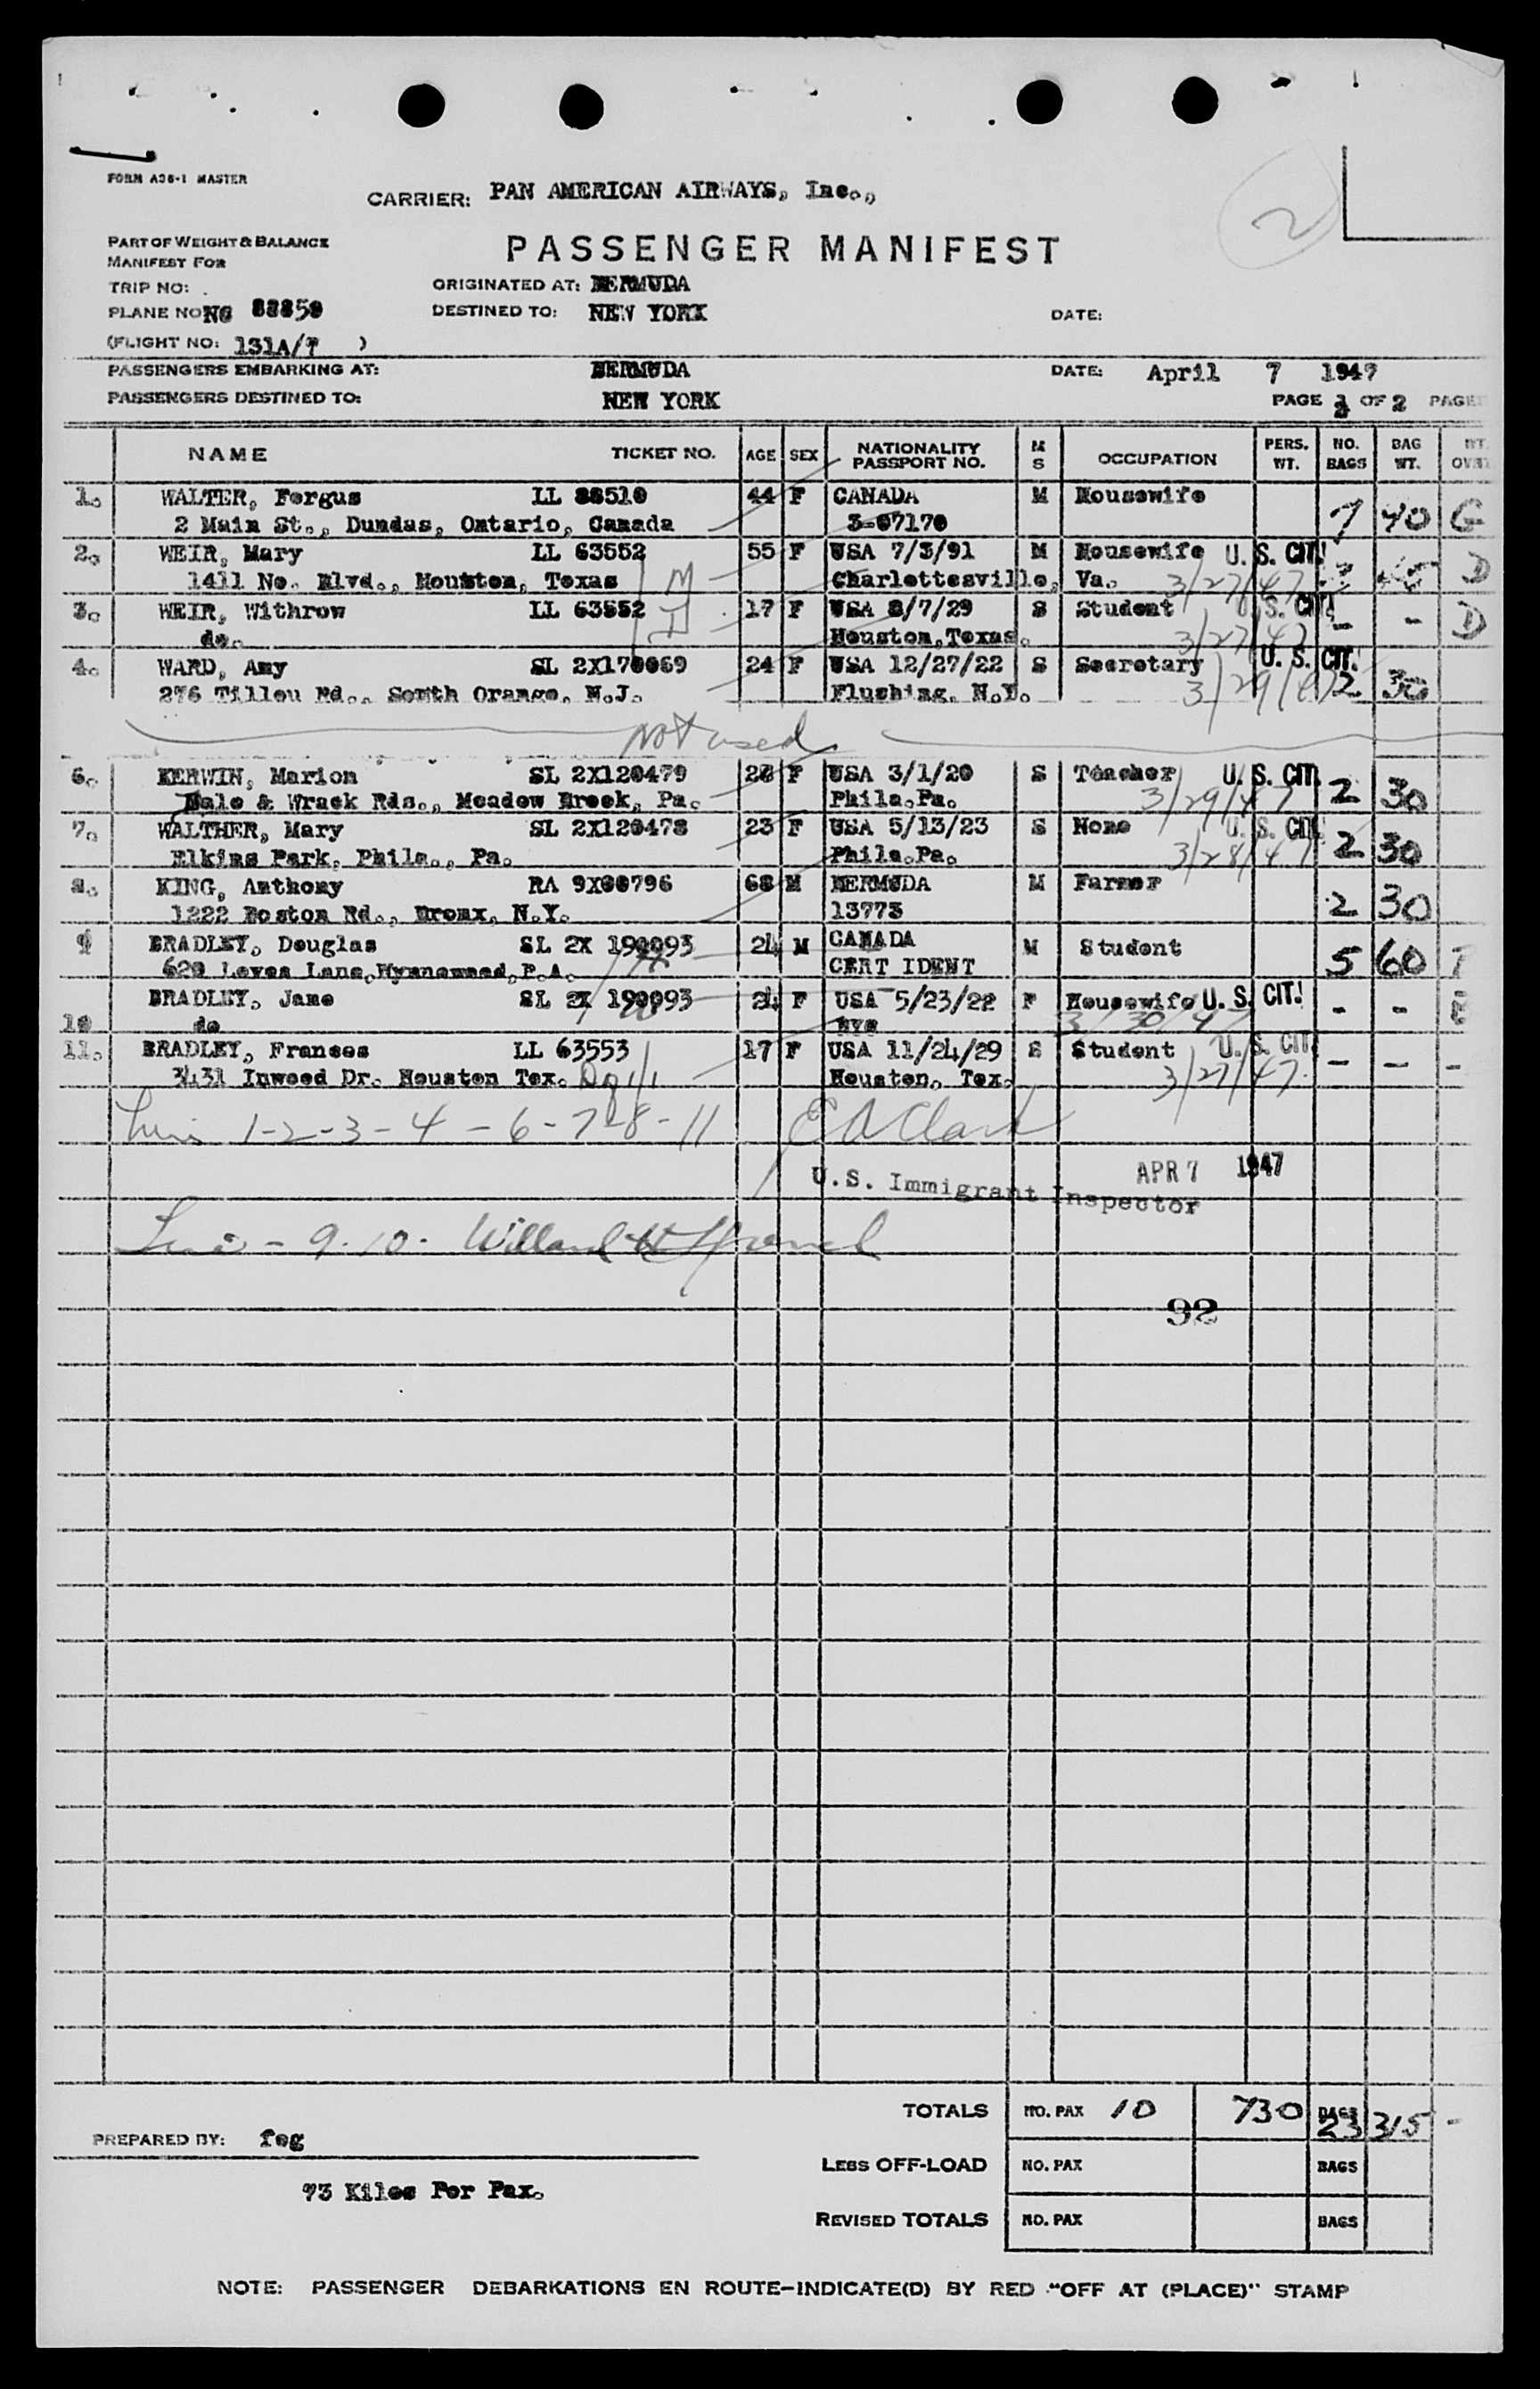 FORM A36-1 MASTER
CARRIER: PAN AMERICAN AIRWAYS, Inc.,
2
PART OF WEIGHT & BALANCE
MANIFEST FOR
PASSENGER MANIFEST
TRIP NO:
ORIGINATED AT: BERMUDA
PLANE NO NC 88859
DESTINED TO: NEW YORK
DATE:
(FLIGHT NO: 131A/7 )
PASSENGERS EMBARKING AT: BERMUDA DATE: April 7 1947
PASSENGERS DESTINED TO: NEW YORK PAGE 2 OF 2 PAGE
NAME TICKET NO. AGE SEX NATIONALITY PASSPORT NO. M S OCCUPATION PERS. WT. NO. BAGS BAG WT. WT.
1. WALTER, Fergus LL 88510 44 F CANADA M Housewife 7 40 G
2 Main St., Dundas, Ontario, Canada 3-07170
2. WEIR, Mary LL 63552 55 F USA 7/3/91 M Housewife U. S. CIT. D
1411 No. Blvd., Houston, Texas M Charlottesville, Va. 3/27/47
3. WEIR, Withrow LL 63552 17 F USA 8/7/29 S Student U. S. CIT. - - D
do. Houston, Texas. 3/27/47
4. WARD, Amy SL 2X170069 24 F USA 12/27/22 S Secretary U. S. CIT. 2 30
276 Tillou Rd., South Orange, N.J. Flushing, N.Y. 3/29/47
Not used
6. KERWIN, Marion SL 2X120479 28 F USA 3/1/20 S Teacher U. S. CIT. 2 30
Dale & Wrack Rds., Meadow Brook, Pa. Phila.Pa. 3/29/47
7. WALTHER, Mary SL 2X120478 23 F USA 5/13/23 S None U. S. CIT. 2 30
Elkins Park, Phila., Pa. Phila.Pa. 3/28/47
8. KING, Anthony RA 9X00796 68 M BERMUDA M Farmer 2 30
1222 Boston Rd., Bronx, N.Y. 13773
9 BRADLEY, Douglas SL 2X 190093 24 M CANADA M Student 5 60
620 Loves Lane, Wynnewood, P.A. CERT IDENT
BRADLEY, Jane SL 2X 190093 24 F USA 5/23/22 F Housewife U. S. CIT. - -
10 do 3/30/47
11. BRADLEY, Franses LL 63553 17 F USA 11/24/29 S Student U. S. CIT - - -
3431 Inwood Dr. Houston Tex. Houston, Tex. 3/27/47
1-2-3-4-6-7-8-11 E A Clark
U.S. Immigrant Inspector APR 7 1947
9.10. Willard H
92
TOTALS NO. PAX 10 730 BAGS 23 315 -
PREPARED BY: feg
LESS OFF-LOAD NO. PAX BAGS
73 Kilos Per Pax.
REVISED TOTALS NO. PAX BAGS
NOTE: PASSENGER DEBARKATIONS EN ROUTE-INDICATE(D) BY RED "OFF AT (PLACE)" STAMP